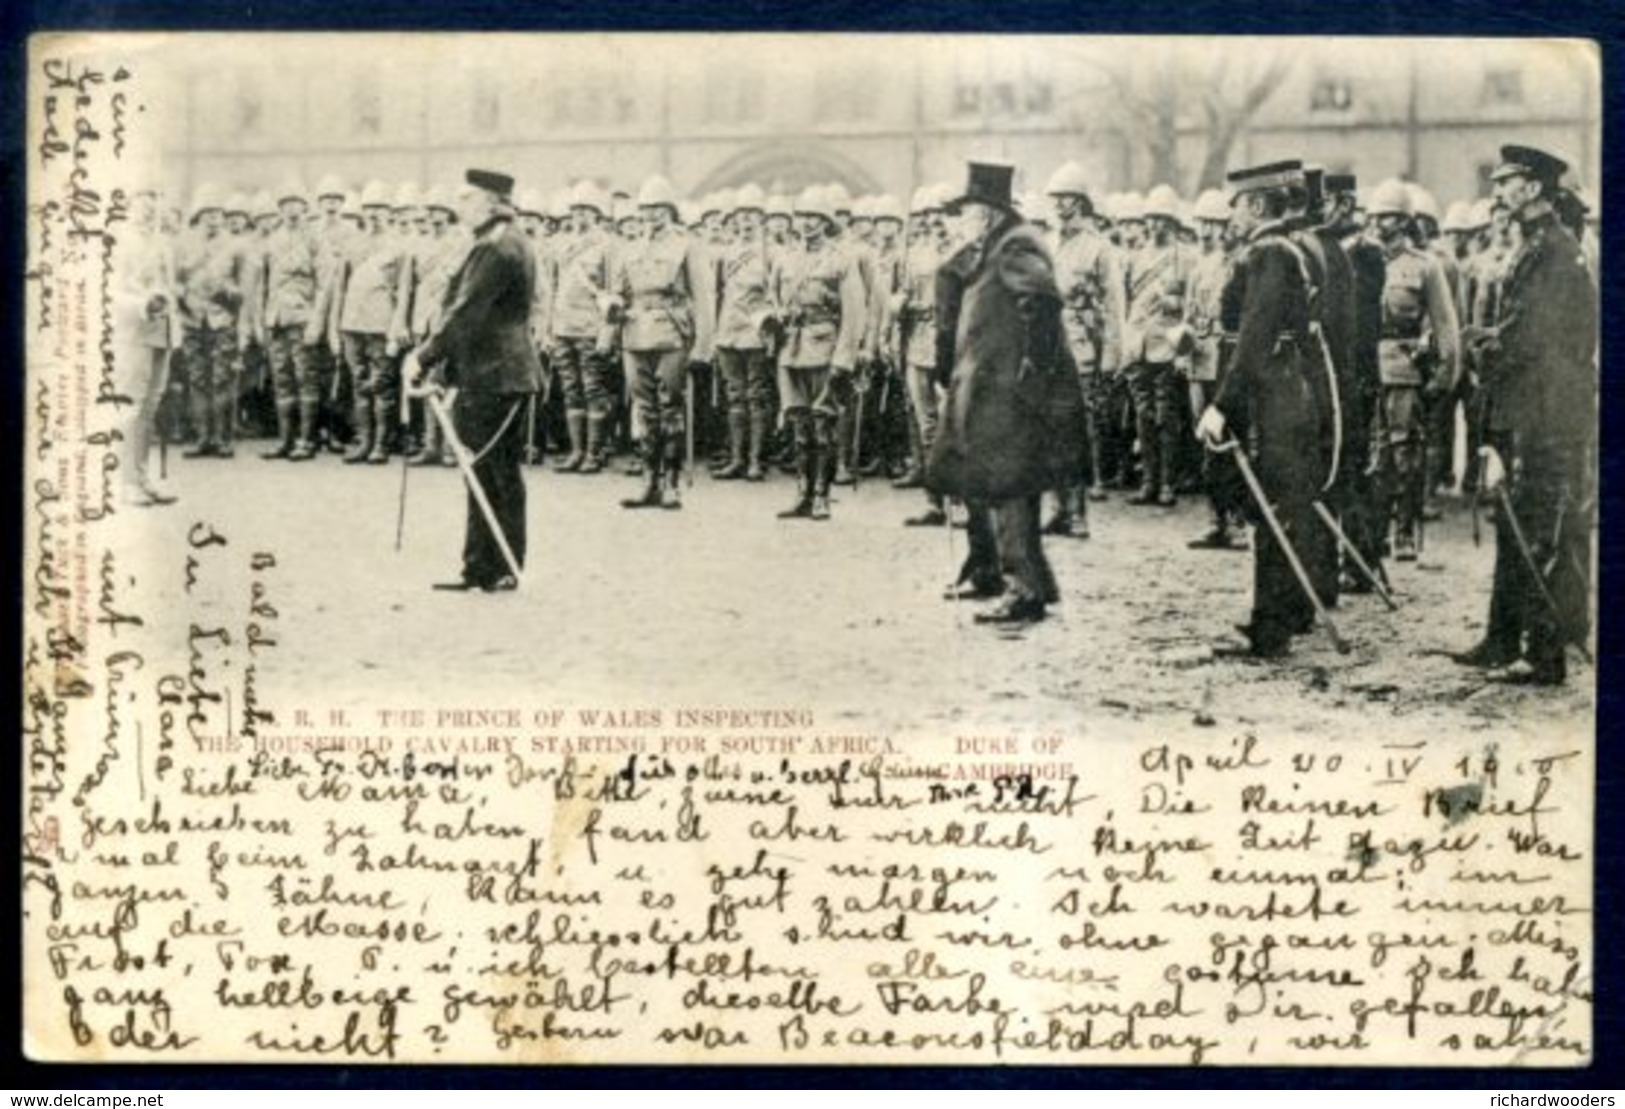 R. H. THE PRINCE OF WALES INSPECTING
THE HOUSEHOLD CAVALRY STARTING FOR SOUTH AFRICA. DUKE OF
CAMBRIDGE
April 20. IV
Liebe Mama, Bitte, zürne mir nicht, Dir keinen Brief
geschrieben zu haben, fand aber wirklich keine Zeit dazu. War
2 mal beim Zahnarzt, u. gehe morgen noch einmal; im
ganzen 5 Zähne, kann es gut zahlen. Ich wartete immer
auf die Masse, schliesslich sind wir ohne gegangen. Miss
Frost, Fox, F. u. ich bestellten alle eine costume. Ich habe
ganz hellbeige gewählt, dieselbe Farbe wird Dir gefallen
oder nicht? Gestern war Beaconsfieldday, wir sahen
sein Monument ganz mit Prim
bedeckt.
Auch gingen wir durch St James
u. Hyde
In Liebe
Clara
Bald mehr
www.delcampe.net
richardwooders